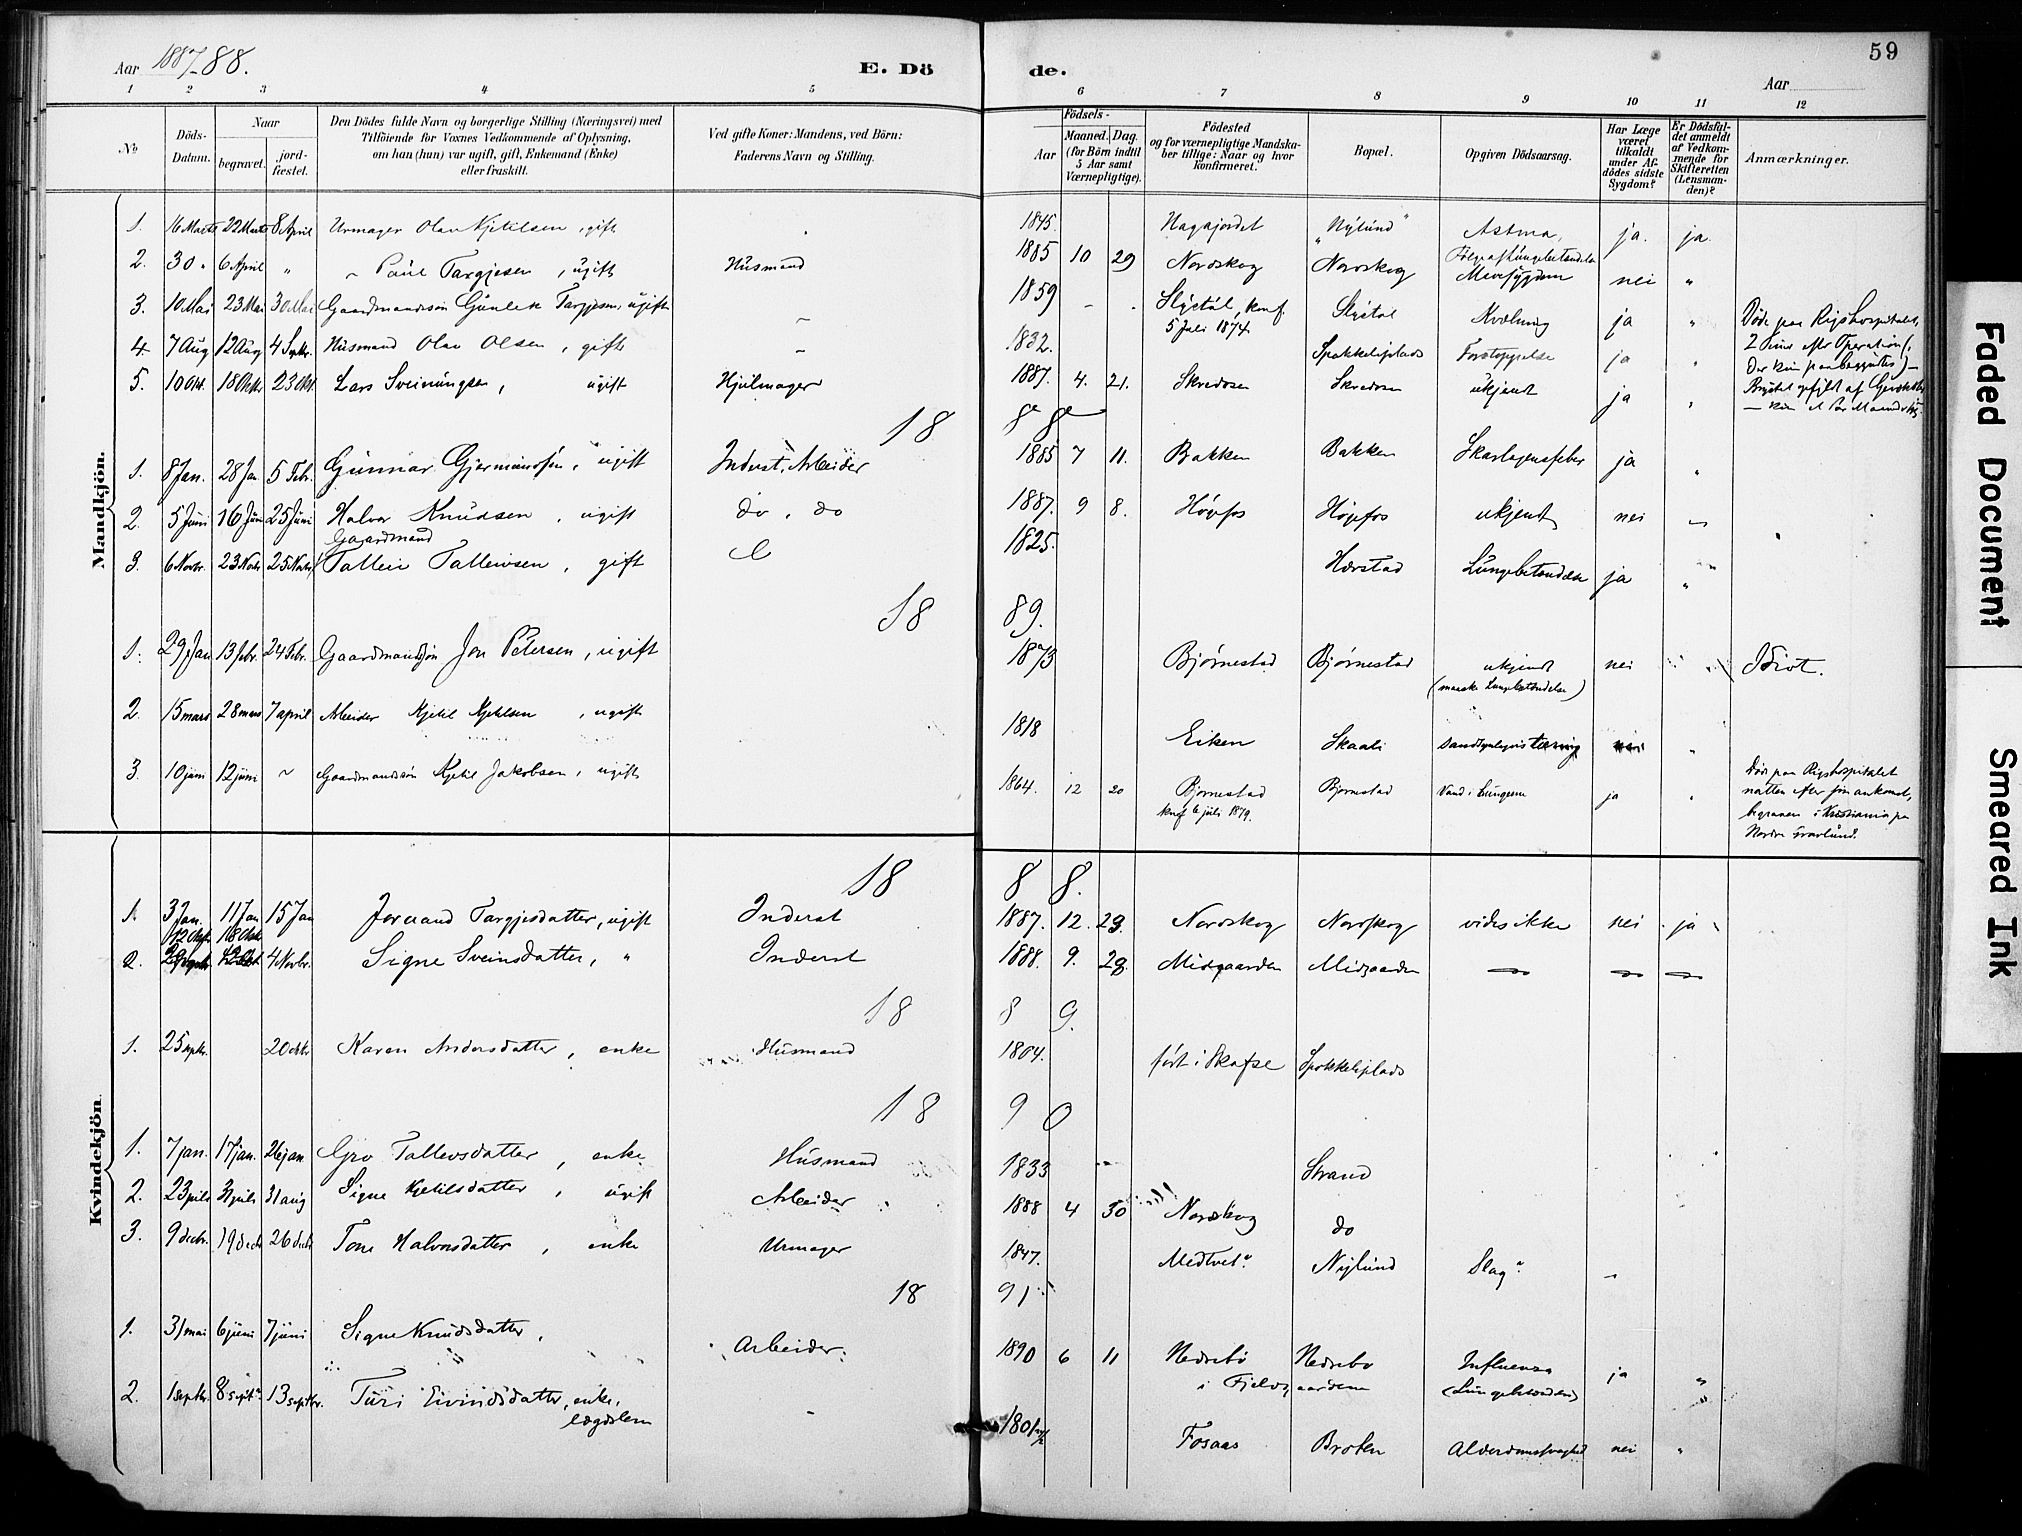 Aar 1887-88.
E. Dö de.
Aar
59
1 2 3 4 5 6 7 8 9 10 11 12
No
Döds-Datum.
Naar
begravet.
jord-fæstet.
Den Dödes fulde Navn og borgerlige Stilling (Næringsvei) med
Tilföiende for Voxnes Vedkommende af Oplysning,
om han (hun) var ugift, gift, Enkemand (Enke)
eller fraskilt.
Ved gifte Koner: Mandens, ved Börn:
Faderens Navn og Stilling.
Födsels-
Aar
Maaned. Dag.
(for Börn indtil
5 Aar samt
Værnepligtige).
Födested
og for værnepligtige Mandska-
ber tillige: Naar og hvor
konfirmeret.
Bopæl.
Opgiven Dödsaarsag.
Har Læge
været
tilkaldt
under Af-
dödes sidste
Sygdom?
Er Dödsfal-
det anmeldt
af Vedkom-
mende for
Skifteretten
(Lensman-
den)?
Anmærkninger.
Mandkjön.
1. 16 Marts 22 Marts 8 April Urmager Olav Kjetilsen, gift 1845. Hagajordet "Nylund" Astma, ja. ja.
2. 30 " 6 April " Paul Targjesen, ugift Husmand 1885 10 29 Nordskog Nordskog Følge af Lungebetændelse nei "
3. 10 Mai 23 Mai 30 Mai Gaardmandssøn Gunlek Targjesen, ugift 1859 Slystøl, knf. 5 Juli 1874. Slystøl Kvælning ja " Døde paa Rigshospitalet,
4 7 Aug 12 Aug 4 Septbr. Husmand Olav Olsen, gift 1832. Spokkeliplads Forstoppelse ja
5. 10 Okt. 18 Oktbr 23 Okt. Lars Sveinungsen, ugift Hjulmager 1887. 4. 21. Skredosen Skredosen ukjendt ja
18 88
1. 8 Jan. 28 Jan 5 Febr. Gunnar Gjermundsøn, ugift Inderst, Arbeider 1885 7 11. Bakken Bakken Skarlagensfeber ja "
2. 5 Juni 16 Juni 25 Juni Halvor Knudsen, ugift do, do 1887. 9 8. Høgefos Høgefos ukjendt nei
3. 6 Novbr. 23 Novbr 25 Novbr Gaardmand Talleiv Talleivsen, gift 1825. Hærstad Lungebetændelse ja "
18 89.
1. 29 Jan 13 febr. 24 Febr. Gaardmandssøn Jon Petersen, ugift 1873 Bjørnestad Bjørnestad ukjendt (maaske Lungebetændelse) nei Idiot.
2. 15 mars 28 mars 7 april Arbeider Kjetil Kjetilsen, ugift 1818 Eiken Skaali nei
3. 10 juni 12 juni Gaardmandssøn Kjetil Jakobsen, ugift 1864. 12 20 Bjørnestad knf 6 juli 1879. Bjørnestad Vand i Lungerne ja Døde paa Rigshospitalet
natten efter sin ankomst,
begraven i Kristiania paa
Nordre Gravlund.
Kvindekjön.
18 88.
1. 3 Jan. 11 Jan 15 Jan Jorand Targjesdatter, ugift Inderst 1887. 12. 23. Nordskog Nordskog vides ikke nei ja
2. 12 Oktbr 18 Oktbr 4 Novbr. Signe Sveinsdatter, " Inderst 1888. 9. 28. Midgaarden Midgaarden
18 89.
1. 25 septbr. 20 oktbr Karen Andersdatter, enke Husmand 1804. født i Skafse Spokkeliplads
18 90
1. 7 jan. 17 jan. 26 jan. Gro Talleivsdatter, enke Husmand 1833 Strand
2. 23 juli 31 juli 31 aug Signe Kjetilsdatter, ugift Arbeider 1888 4 30 Nordskog do
3. 9 decbr. 19 decbr 26 decbr Tone Halvorsdatter, enke Urmager 1847. Medtvet Nylund Slag
18 91
1. 31 mai 6 juni 7 juni Signe Knudsdatter, Arbeider 1890 6 11 Nedrebø i Fjeldgaardene Nedrebø Influenza (Lungebetændelse) ja "
2. 1 septbr. 8 septbr 13 septbr. Turi Eivindsdatter, enke, lægdslem 1801 Fosaas Broten Alderdomssvaghed nei "
Faded Document
Smeared Ink